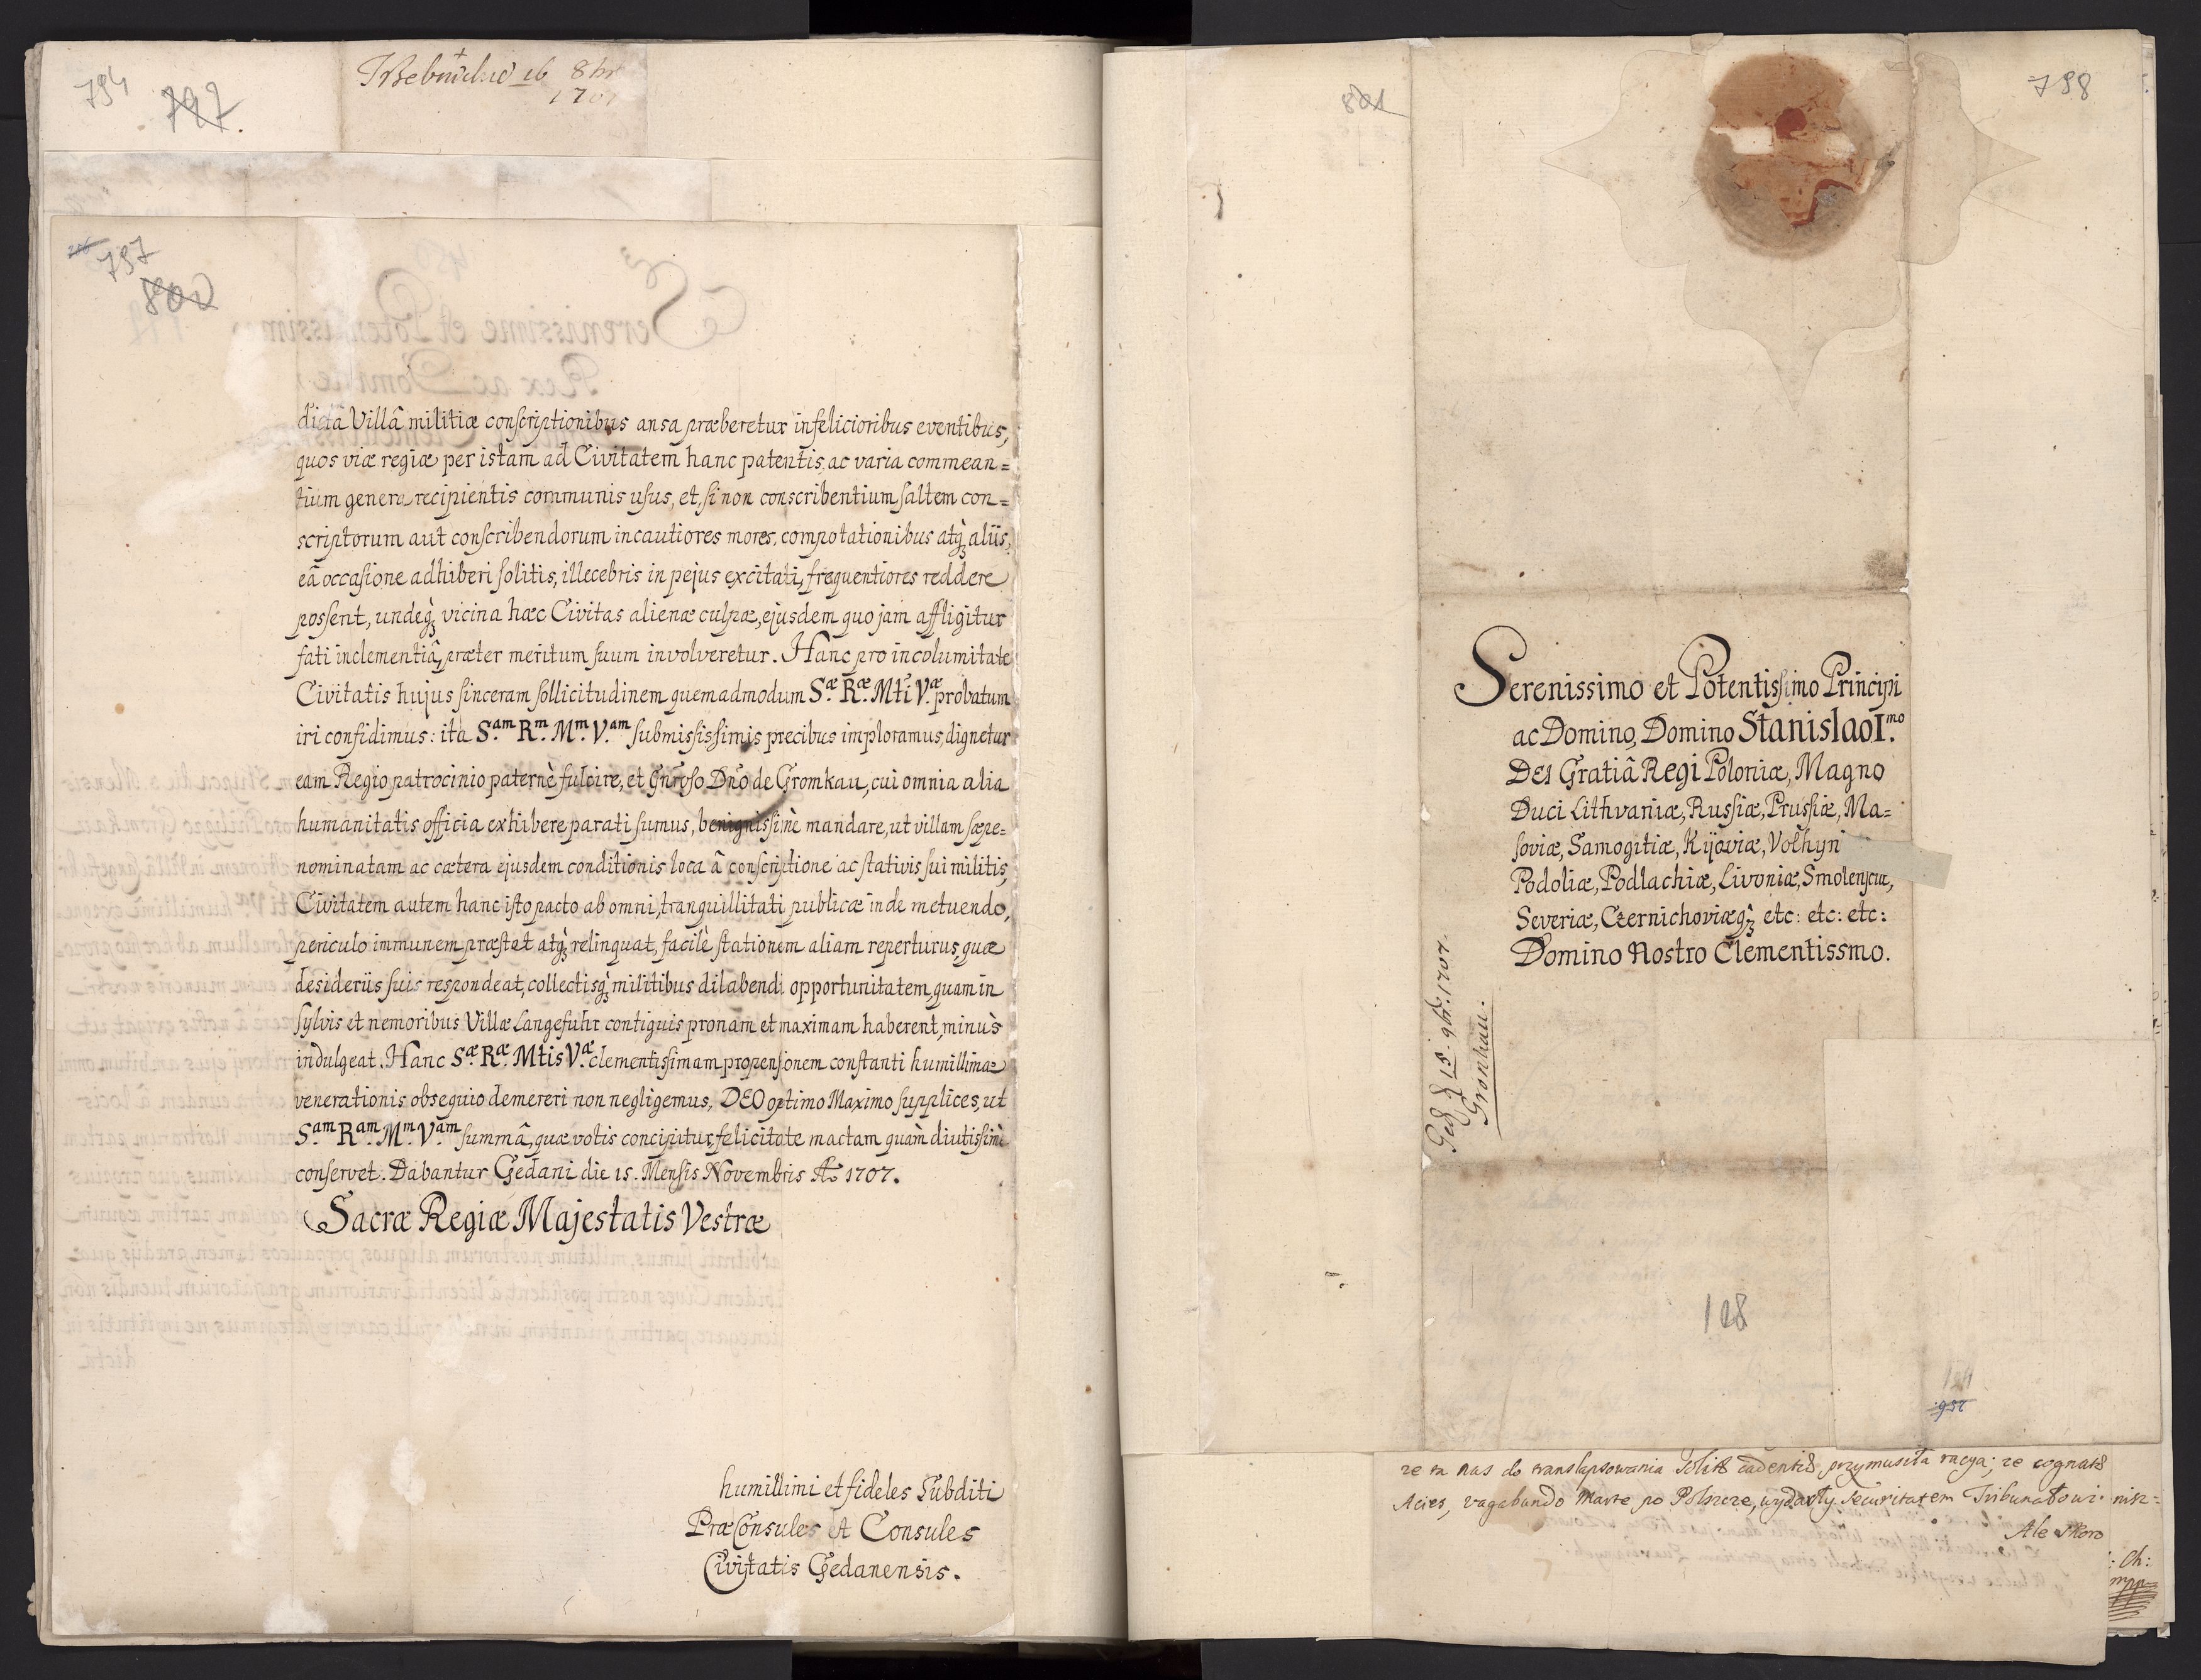 794
797.
Trebnicho 16 8br
1707
797
800
dictâ Villâ militiæ conscriptionibus ansa præberetur infelicioribus eventibus,
quos viæ regiæ per istam ad Civitatem hanc patentis, ac varia commean=
tium genera recipientis communis usus, et, si non conscribentium saltem con=
scriptorum aut conscribendorum incautiores mores, compotationibus atq; aliis,
eâ occasione adhiberi solitis, illecebris in pejus excitati, frequentiores reddere
possent, undeq; vicina hæc Civitas alienæ culpæ, ejusdem quo jam affligitur
fati inclementiâ, præter meritum suum involveretur. Hanc pro incolumitate
Civitatis hujus sinceram sollicitudinem quemadmodum S.æ R.æ Mti V.æ probatum
iri confidimus: ita S.am R.m M.m V.am submississimis precibus imploramus, dignetur
eam Regio patrocinio paternè fulcire, et Gnroso Dno de Gromkau, cui omnia alia
humanitatis officia exhibere parati sumus, benignissimè mandare, ut villam sæpe=
nominatam ac cætera ejusdem conditionis loca â conscriptione ac stativis sui militis,
Civitatem autem hanc isto pacto ab omni, tranquillitati publicæ inde metuendo,
periculo immunem præstet atq; relinquat, facilè stationem aliam reperturus, quæ
desideriis suis respondeat, collectisq; militibus dilabendi opportunitatem, quam in
sylvis et nemoribus Villæ Langefuhr contiguis pronam et maximam haberent, minùs
indulgeat. Hanc S.æ R.æ Mtis V.æ clementissimam propensionem constanti humillimæ
venerationis obsequio demereri non negligemus, DEO optimo Maximo supplices, ut
S.am R.am M.m V.am summâ, quæ votis concipitur, felicitate mactam quàm diutissimè
conservet. Dabantur Gedani die 15. Mensis Novembris Ao 1707.
Sacræ Regiæ Majestatis Vestræ
humillimi et fideles Subditi
PræConsules et Consules
Civitatis Gedanensis.
801
798
Serenissimo et Potentissimo Principi
ac Domino, Domino Stanislao I.mo
DEI Gratiâ Regi Poloniæ, Magno
Duci Lithvaniæ, Russiæ, Prussiæ, Ma=
soviæ, Samogitiæ, Kijoviæ, Volhyn
Podoliæ, Podlachiæ, Livoniæ, Smolensciæ,
Severiæ, Czernichoviæq; etc: etc: etc:
Domino Nostro Clementissmo.
15. 9br: 1707.
Gronkau.
128
952
ze ta nas do przymusiła racya; ze cognatæ
Acies, vagabundo Marte po Polszcze, wydarły Securitatem Tribunałowi. nisz=
Ale skoro
: Ch:
mpp